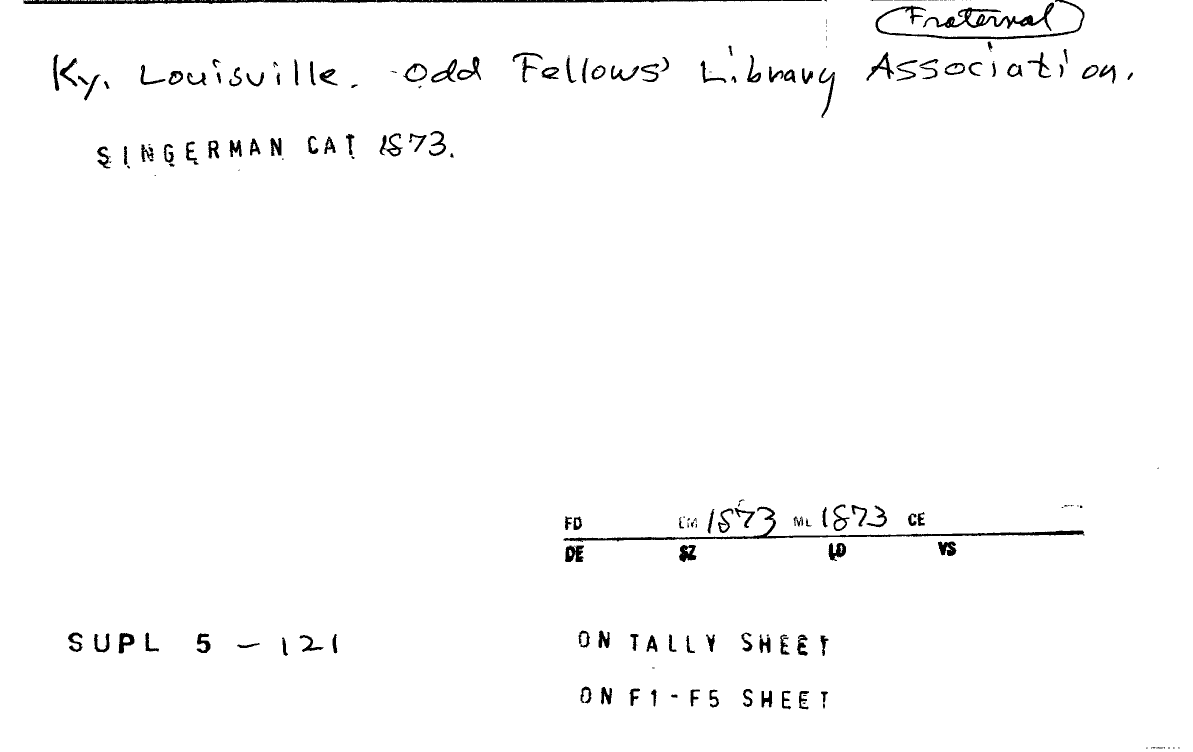 Fraternal
Ky. Louisville. Odd Fellows' Library Association.
SINGERMAN CAT 1873.
FD EM 1873 ML 1873 CE
DE SZ LD VS
SUPL 5 - 121 ON TALLY SHEET
ON F1-F5 SHEET